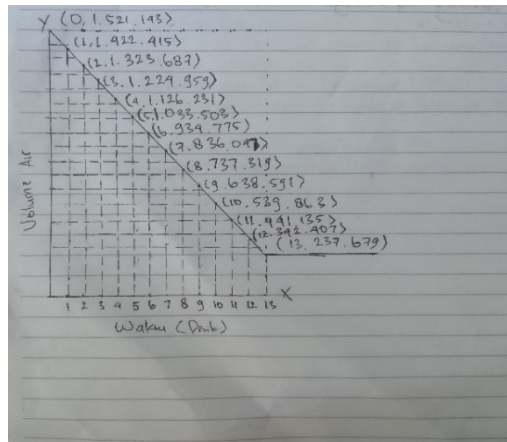 Y (0, 1.521.143)
(1, 1.422.415)
(2. 1.323.687)
(3. 1.224.959)
(4. 1.126.231)
(5, 1.033.503)
(6. 934.775)
(7. 836.047)
(8. 737.319)
(9. 638.591)
(10. 539.863)
(11. 441.135)
(12. 342.407)
(13. 237.679)
Volume Air
X
1 2 3 4 5 6 7 8 9 10 11 12 13
Waktu (Detik)